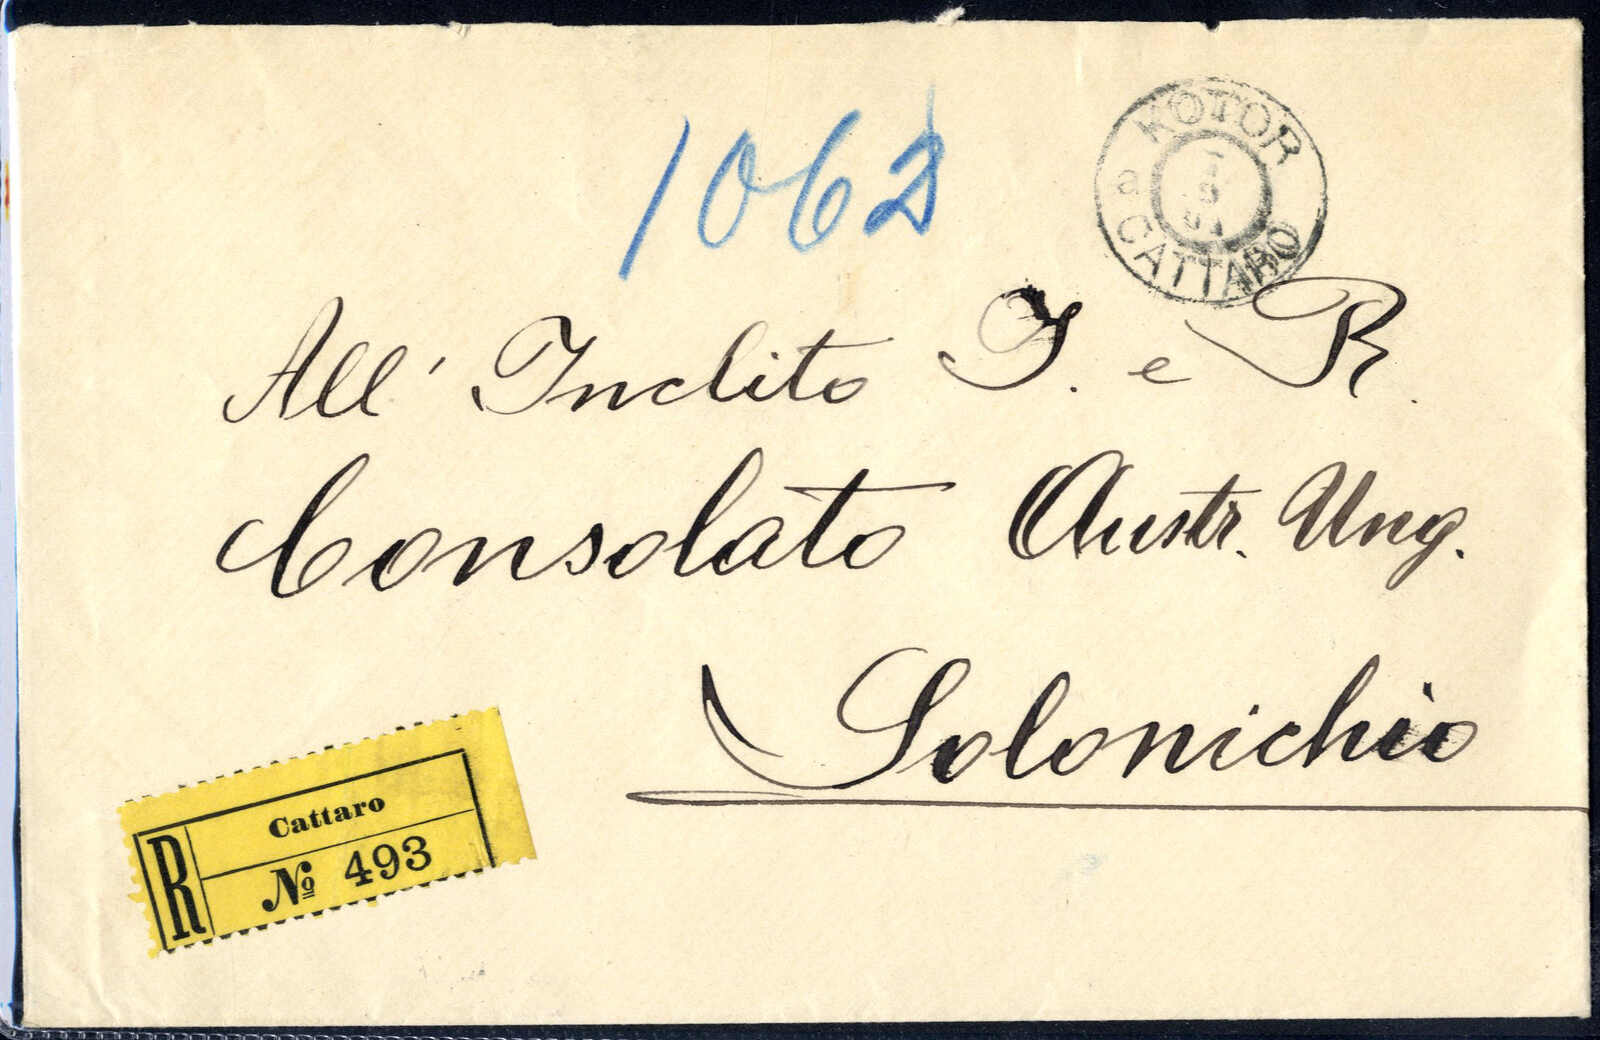 1062
KOTOR
a
CATTARO
All' Inclito I. e R.
Consolato Austr. Ung.
Solonichio
R
Cattaro
No 493